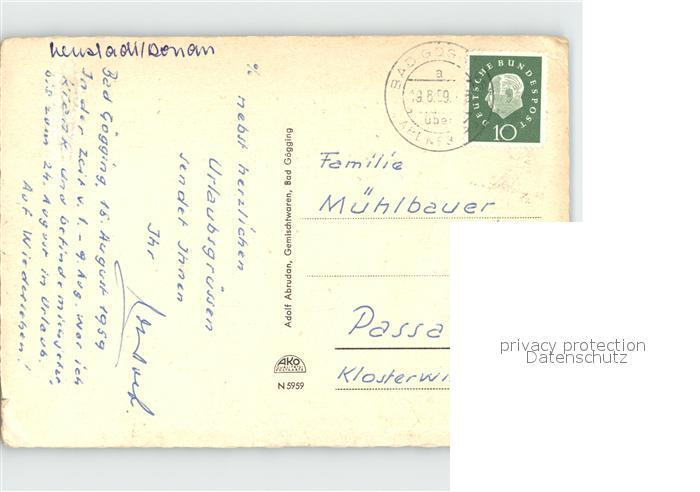 Neustadt/Donau
Bad Gögging, 15. August 1959
In der Zeit v. 1. - 9. Aug. war ich
krank und befinde mich jetzt
bis zum 24. August in Urlaub.
Auf Wiedersehen!
%
nebst herzlichen
Urlaubsgrüssen
sendet Ihnen
Ihr
Adolf Abrudan, Gemischtwaren, Bad Gögging
AKO
N 5959
BAD GÖGG
a
19.8.59.
über
DEUTSCHE BUNDESPOST
10
Familie
Mühlbauer
Passa
Klosterwi
privacy protection
Datenschutz